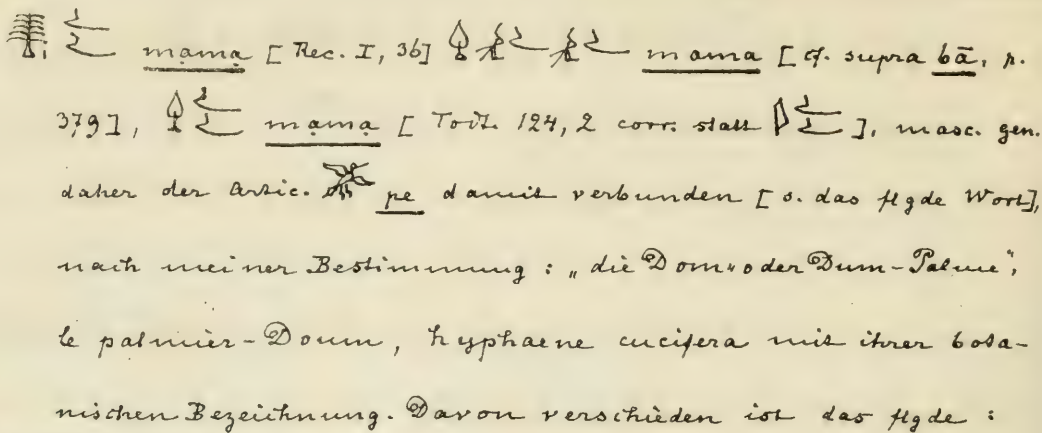 mạmạ [Rec. I, 36] mama [cf. supra bā, p.
379], mạmạ [Todt. 124, 2 corr. statt ], masc. gen.
daher der Artic. pe damit verbunden [s. das flgde Wort],
nach meiner Bestimmung: „die Dom- oder Dum-Palme",
le palmier-Doum, hyphaene cucifera mit ihrer bota-
nischen Bezeichnung. Davon verschieden ist das flgde: